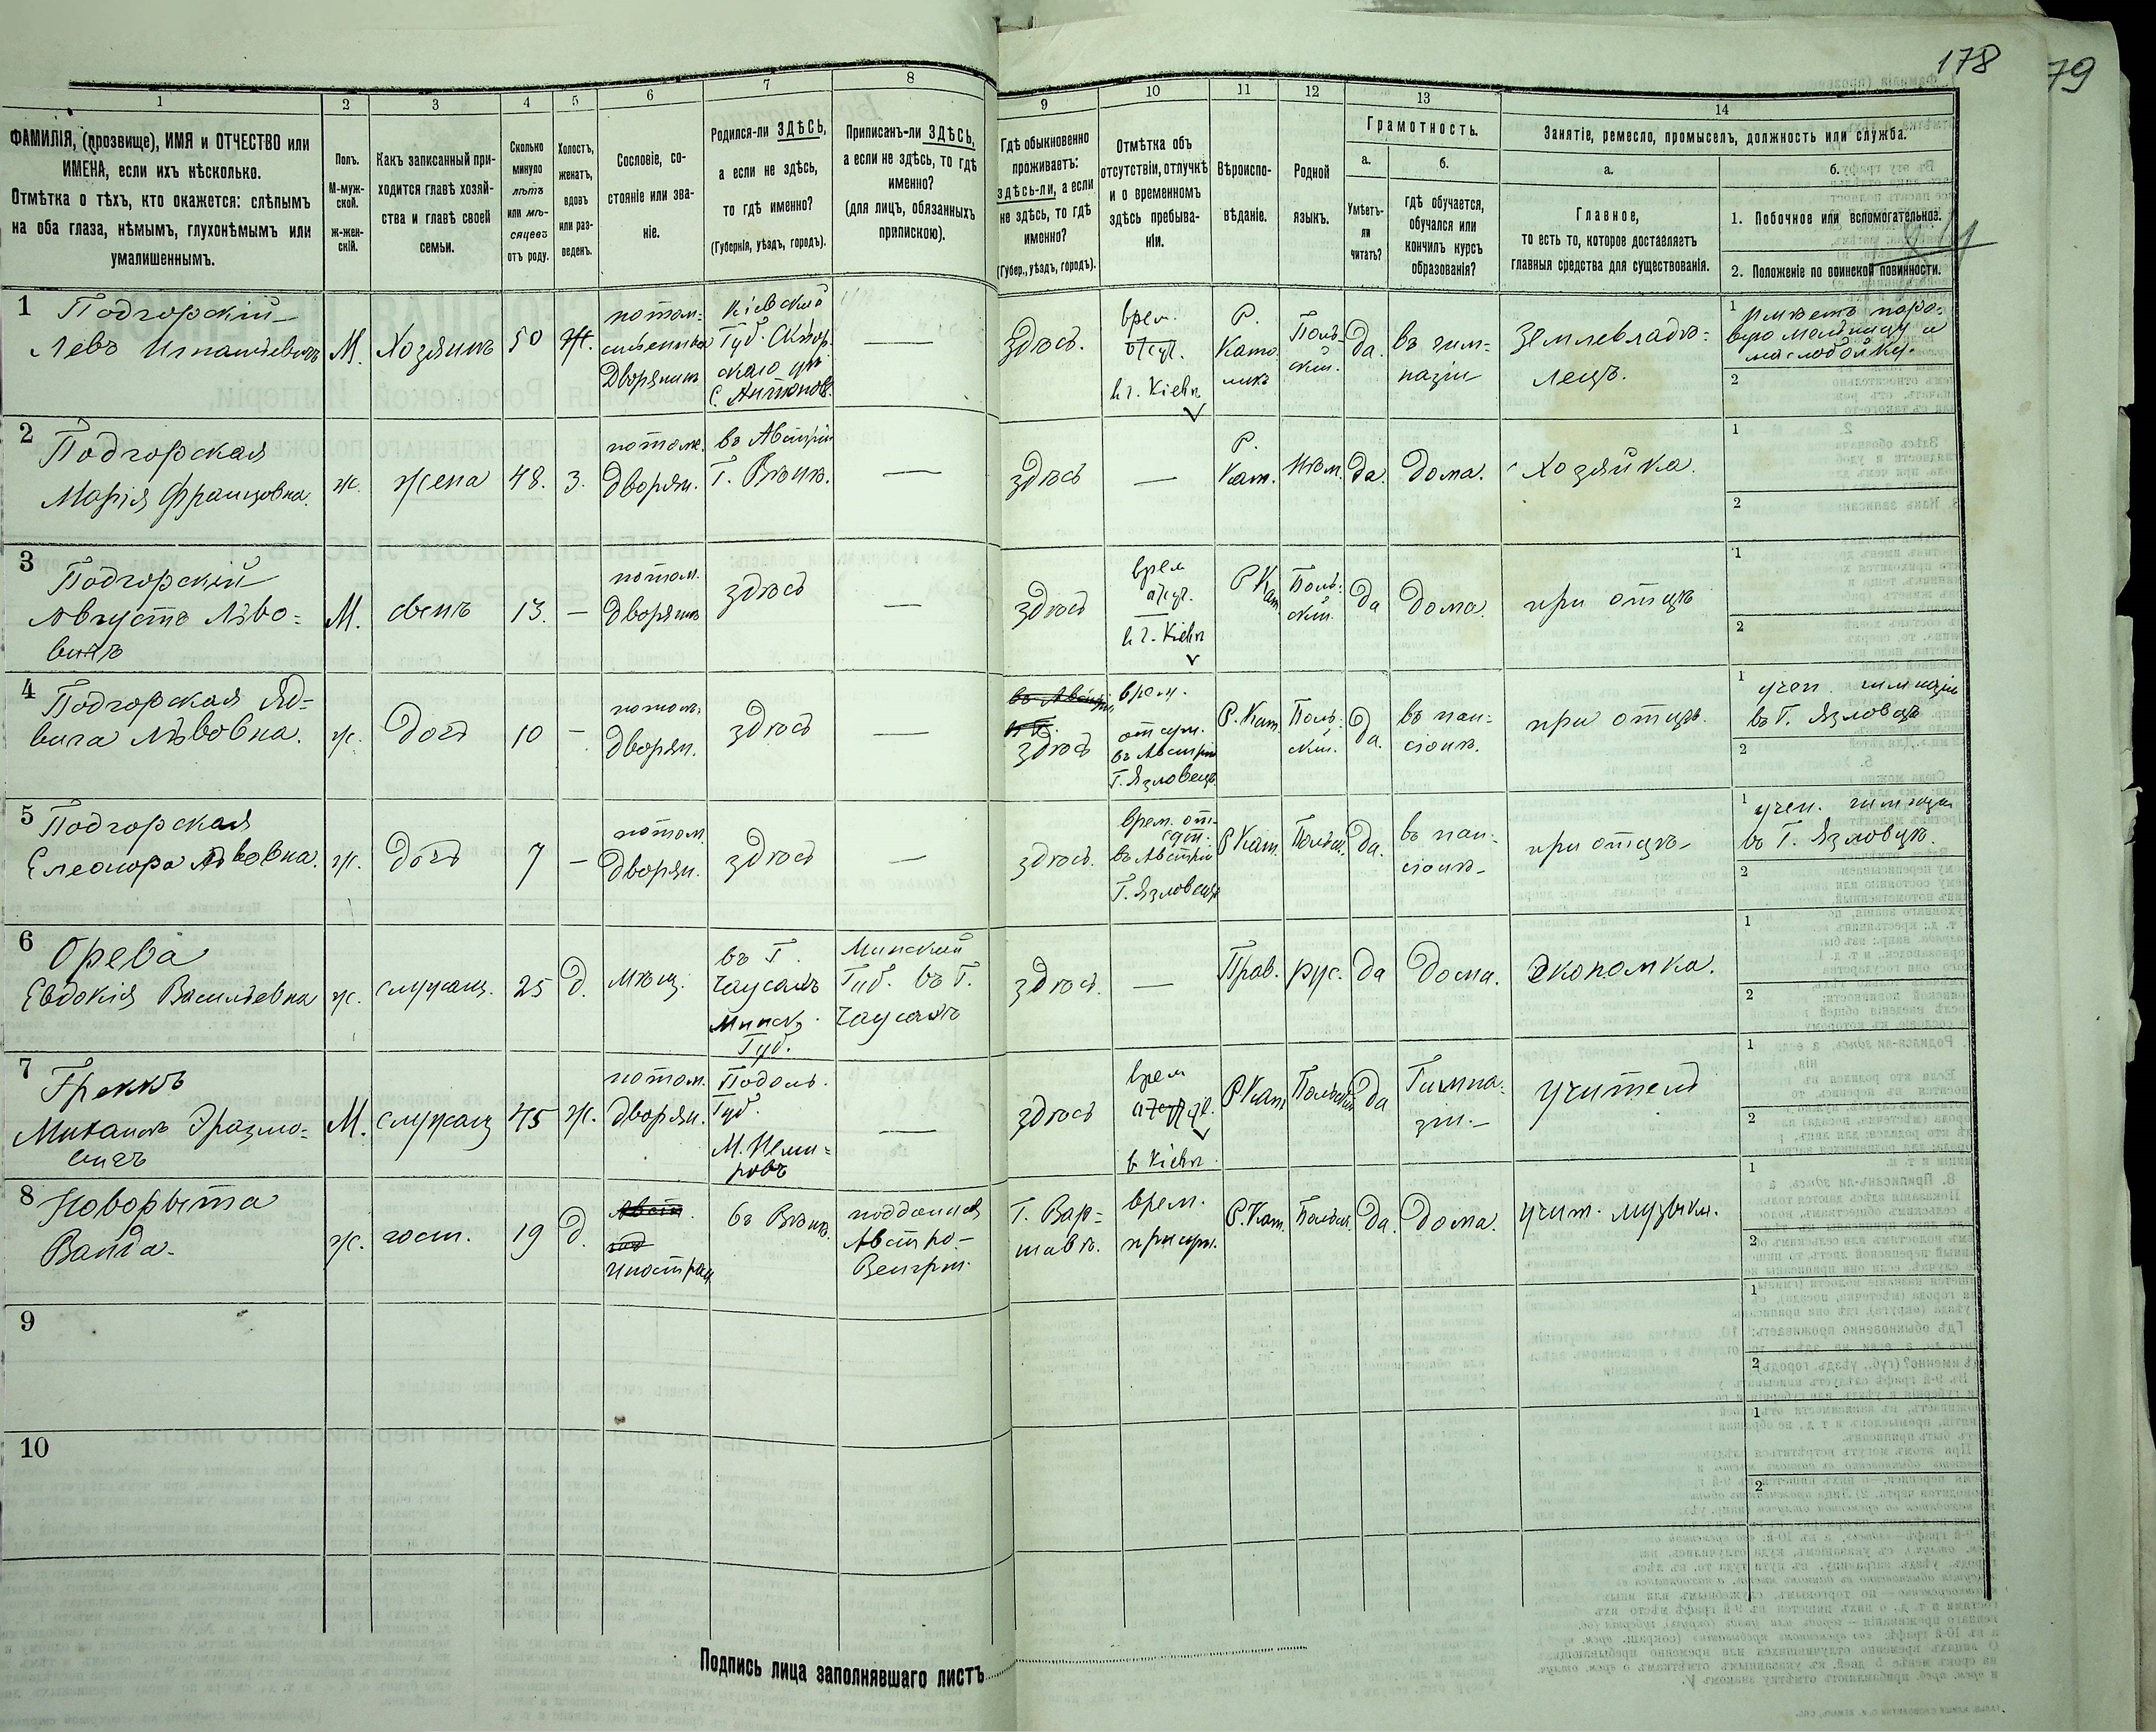 178
79
1
2
3
4
5
6
7
8
9
10
11
12
13
14
ФАМИЛІЯ, (прозвище), ИМЯ и ОТЧЕСТВО или
ИМЕНА, если ихъ нѣсколько.
Отмѣтка о тѣхъ, кто окажется: слѣпымъ
на оба глаза, нѣмымъ, глухонѣмымъ или
умалишеннымъ.
Полъ.
М-муж-
ской.
ж-жен-
скій.
Какъ записанный при-
ходится главѣ хозяй-
ства и главѣ своей
семьи.
Сколько
минуло
лѣтъ
или мѣ-
сяцевъ
отъ роду.
Холостъ,
женатъ,
вдовъ
или раз-
веденъ.
Сословіе, со-
стояніе или зва-
ніе.
Родился-ли ЗДѢСЬ,
а если не здѣсь,
то гдѣ именно?
(Губернія, уѣздъ, городъ).
Приписанъ-ли ЗДѢСЬ,
а если не здѣсь, то гдѣ
именно?
(для лицъ, обязанныхъ
припискою).
Гдѣ обыкновенно
проживаетъ:
здѣсь-ли, а если
не здѣсь, то гдѣ
именно?
(Губер., уѣздъ, городъ).
Отмѣтка объ
отсутствіи, отлучкѣ
и о временномъ
здѣсь пребыва-
ніи.
Вѣроиспо-
вѣданіе.
Родной
языкъ.
Грамотность.
а.
Умѣетъ-
ли
читать?
б.
гдѣ обучается,
обучался или
кончилъ курсъ
образованія?
Занятіе, ремесло, промыселъ, должность или служба.
а.
Главное,
то есть то, которое доставляетъ
главныя средства для существованія.
б.
1. Побочное или вспомогательное.
2. Положеніе по воинской повинности.
1 Подгорскій
Левъ Игнатьевичъ
М.
Хозяинъ
50
Ж.
потом-
ственный
Дворянинъ
Кіевской
Губ. Сквир-
скаго уѣ
с. Антонов.
—
здѣсь.
врем.
отсут.
в г. Кіевѣ
Р.
Като
ликъ
Поль-
скій.
да.
въ гим-
назіи
Землевладѣ-
лецъ.
1 Имѣетъ паро-
вую мельницу и
маслобойку.
2
2 Подгорская
Марія Францовна.
ж.
жена
48.
З.
потом.
Дворян.
въ Австріи
Г. Вѣнѣ.
—
здѣсь
—
Р.
Кат.
Нѣм.
да.
дома.
Хозяйка.
1
2
3 Подгорскій
Августъ Льво-
вичъ
М.
сынъ
13.
—
потом.
Дворянинъ
здѣсь
—
здѣсь
врем
отсут.
в г. Кіевѣ
Р Кат
Поль-
скій.
да
дома.
при отцѣ
1
2
4 Подгорская Яд-
вига Львовна.
ж.
дочь
10
—
потом.
Дворян.
здѣсь
—
въ Австріи
здѣсь
врем.
отсут.
въ Австріи
Г. Язловецъ
Р. Кат.
Поль-
скій.
да.
въ пан-
сіонѣ.
при отцѣ.
1 учен. гимназіи
въ Г. Язловцѣ
2
5 Подгорская
Елеонора Львовна.
ж.
дочь
7
—
потом.
Дворян.
здѣсь
—
здѣсь.
врем. от-
сут.
въ Австріи
Г. Язловецъ
Р Кат.
Польск.
да.
въ пан-
сіонѣ.
при отцѣ.
1 учен. гимназіи
въ Г. Язловцѣ.
2
6 Орева
Евдокія Васильевна
ж.
служащ.
25
д.
мѣщ.
въ Г.
Чаусахъ
Минск.
Губ.
Минской
Губ. въ Г.
Чаусахъ
здѣсь.
—
Прав.
рус.
да
дома.
Экономка.
1
2
7 Греккъ
Михаилъ Эразмо-
вичъ
М.
служащ
45
Ж.
потом.
дворян.
Подоль.
Губ.
М. Неми-
ровъ
—
здѣсь
врем
отсут.
в Кіевѣ
Р Кат
Польский
да
Гимна-
зіи.
учитель
1
2
8 Новорыта
Ванда.
ж.
гост.
19
д.
Австр.
под
иностран
въ Вѣнѣ.
подданная
Австро-
Венгріи.
Г. Вар-
шавѣ.
врем.
присут.
Р. Кат.
Польск.
да.
дома.
учит. музыки.
1
2
9
1
2
10
1
2
Подпись лица заполнявшаго листъ